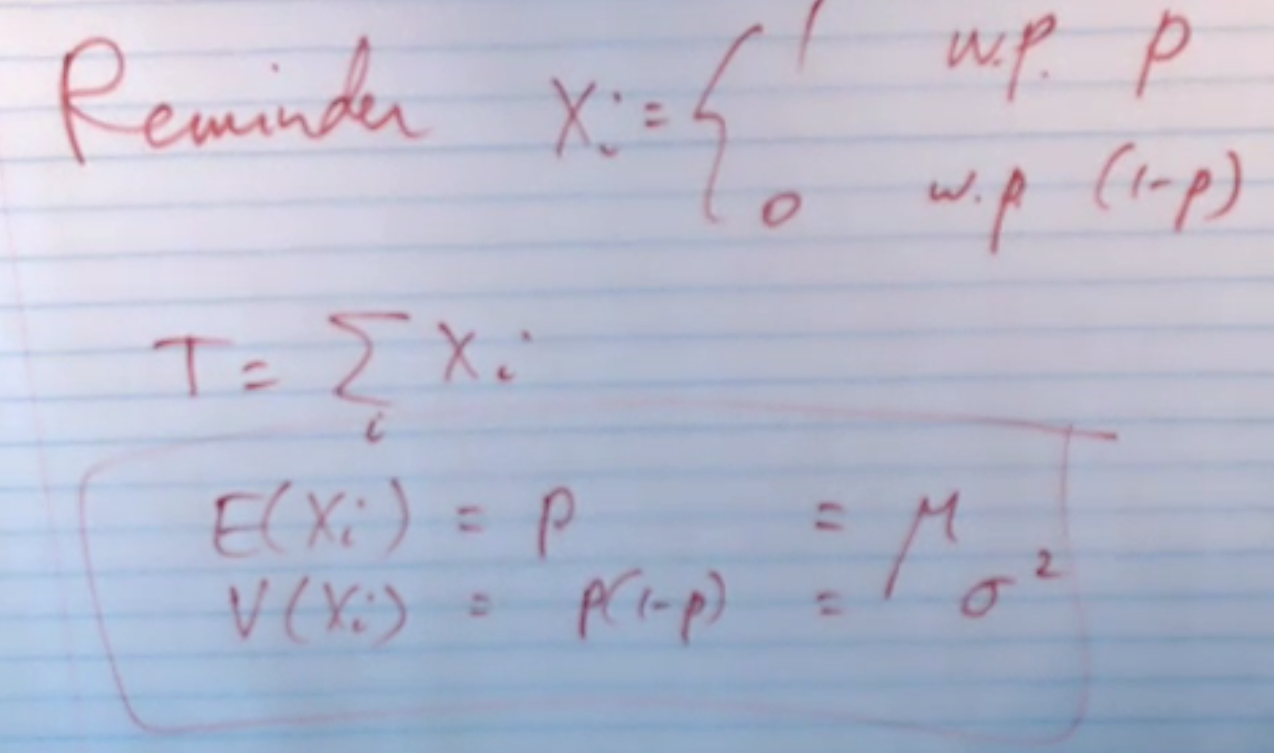 Reminder Xi = { 1 w.p. p
0 w.p (1-p)
T = ∑ Xi
i
E(Xi) = p = μ
V(Xi) = p(1-p) = σ²